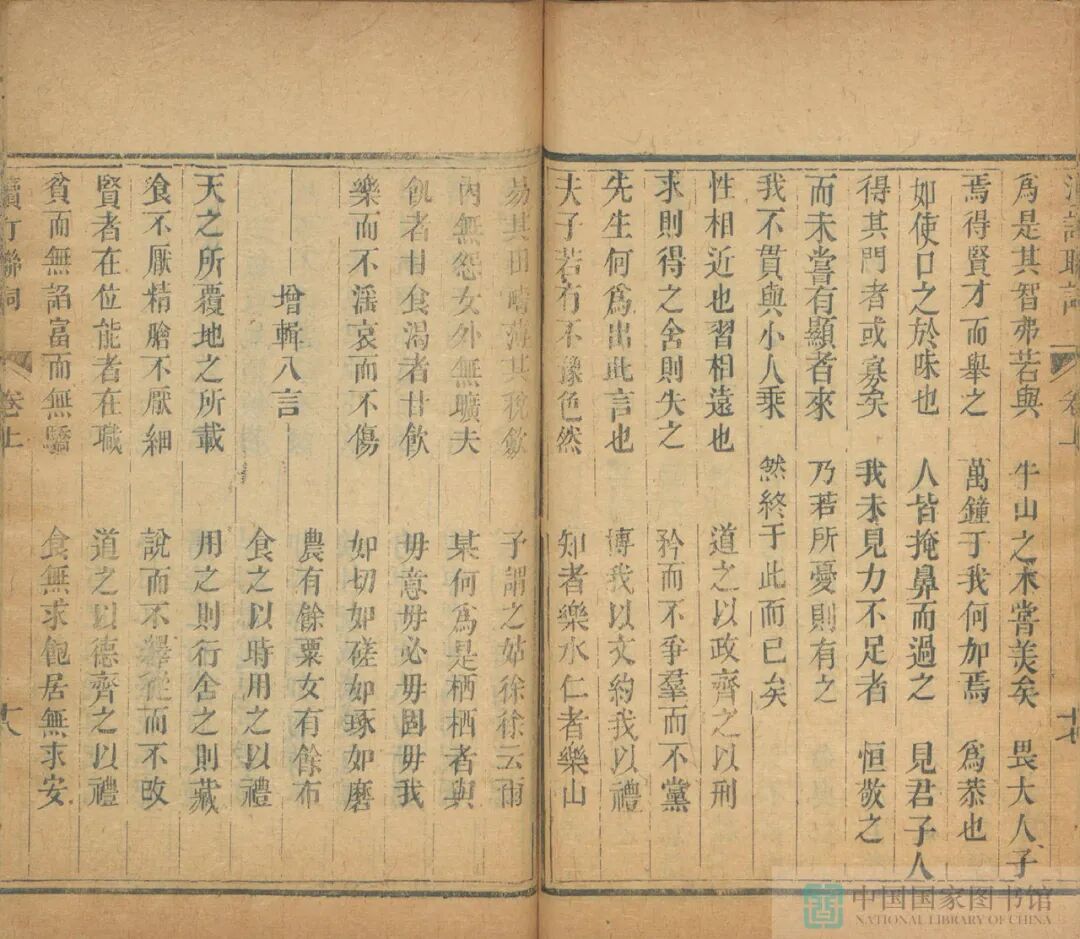 訂聯詞 卷上 十七
爲是其智弗若與 牛山之木嘗美矣 畏大人子
焉得賢才而舉之 萬鐘于我何加焉 爲恭也
如使口之於味也 人皆掩鼻而過之 見君子人
得其門者或寡矣 我未見力不足者 恒敬之
而未嘗有顯者來 乃若所憂則有之
我不貫與小人乘 然終于此而已矣
性相近也習相遠也 道之以政齊之以刑
求則得之舍則失之 矜而不爭羣而不黨
先生何爲出此言也 博我以文約我以禮
夫子若有不豫色然 知者樂水仁者樂山
易其田疇薄其稅斂 子謂之姑徐徐云爾
內無怨女外無曠夫 某何爲是栖栖者與
飢者甘食渴者甘飲 毋意毋必毋固毋我
樂而不淫哀而不傷 如切如磋如琢如磨
增輯八言 農有餘粟女有餘布
食之以時用之以禮
天之所覆地之所載 用之則行舍之則藏
食不厭精膾不厭細 說而不繹從而不改
賢者在位能者在職 道之以德齊之以禮
貧而無諂富而無驕 食無求飽居無求安
續訂聯詞 卷上 十八
中国国家图书馆
NATIONAL LIBRARY OF CHINA